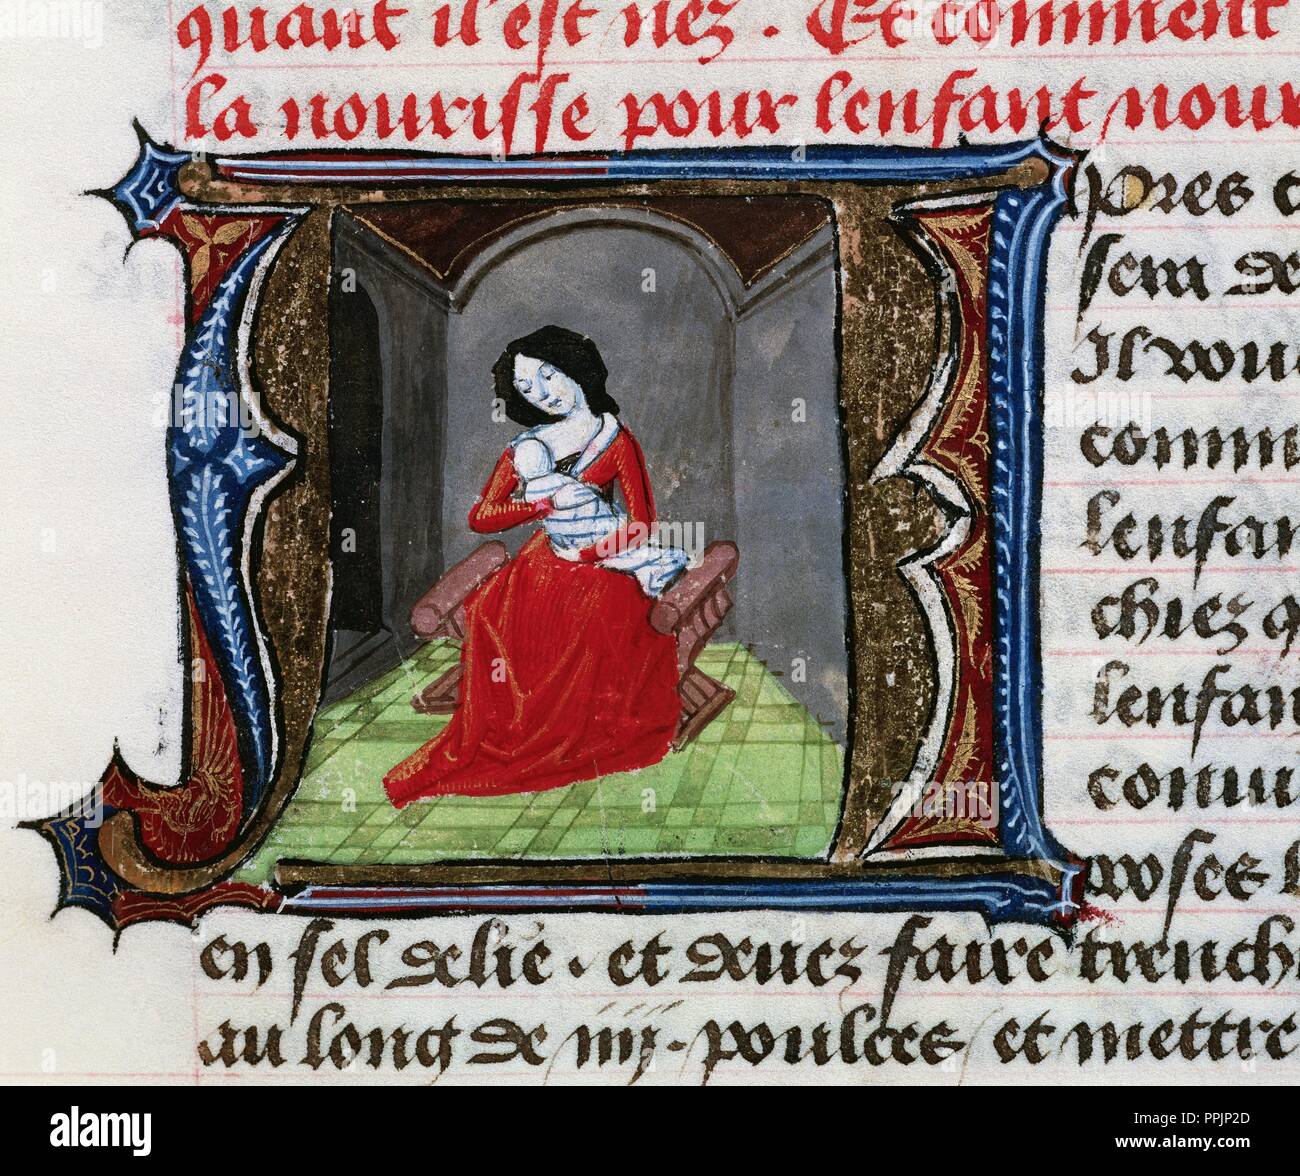 quant il est nez. Et comment
la nourisse pour lenfant nour
Apres c
sem de
Il vou
comm
lenfan
chiez q
lenfan
conui
roses
en sel delie. et deuez faire trench
au long de iiij. poulces et mettre
alamy
Image ID: PPJP2D
www.alamy.com